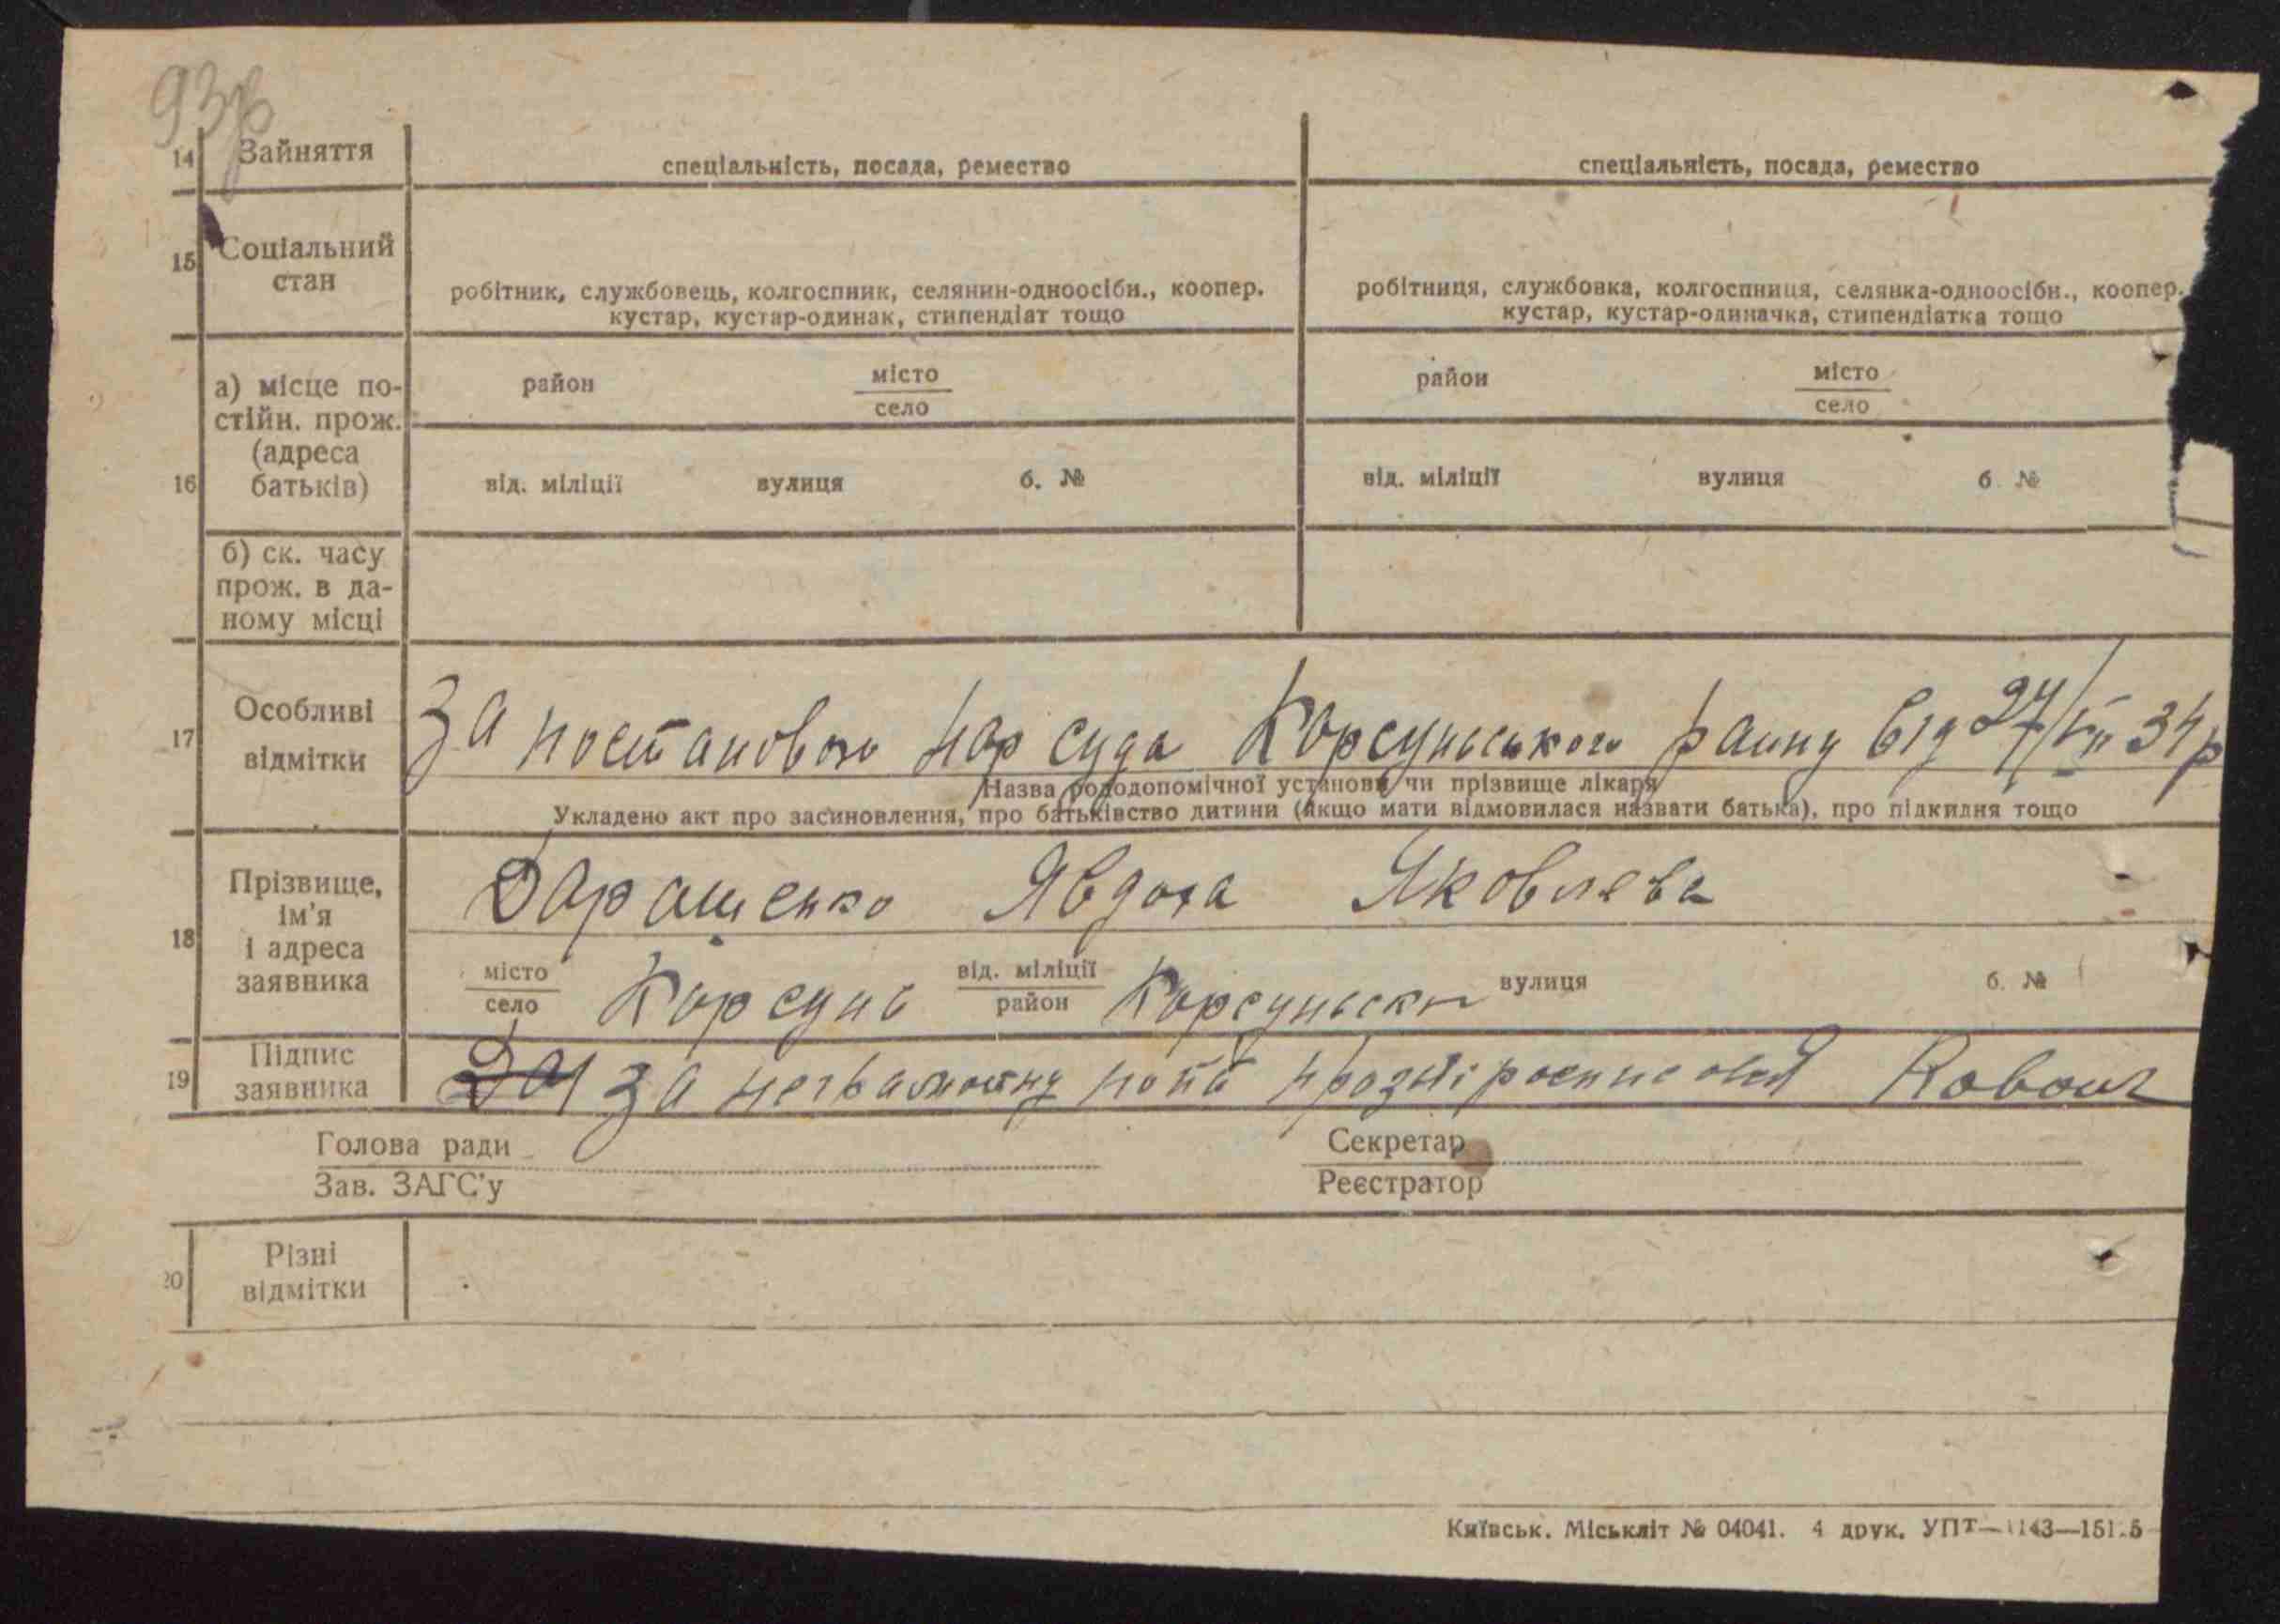 93
14 Зайняття
спеціальність, посада, ремество
спеціальність, посада, ремество
15 Соціальний
стан
робітник, службовець, колгоспник, селянин-одноосібн., коопер.
кустар, кустар-одинак, стипендіат тощо
робітниця, службовка, колгоспниця, селянка-одноосібн., коопер.
кустар, кустар-одиначка, стипендіатка тощо
16
а) місце по-
стійн. прож.
(адреса
батьків)
район місто
село
район місто
село
від. міліції вулиця б. №
від. міліції вулиця б №
б) ск. часу
прож. в да-
ному місці
17 Особливі
відмітки
За постановою нар суда Корсунського раину від 27/VII 34р
Назва рододопомічної установи чи прізвище лікаря
Укладено акт про засиновлення, про батьківство дитини (якщо мати відмовилася назвати батька), про підкидня тощо
18 Прізвище,
ім'я
і адреса
заявника
Даращенко Явдоха Яковлева
місто
село
Корсунь
від. міліції
район
Корсунськ
вулиця б. №
19 Підпис
заявника
за неграмотну
Голова ради
Зав. ЗАГС'у
Секретар
Реєстратор
20 Різні
відмітки
Київськ. Міськліт № 04041. 4 друк. УПТ—